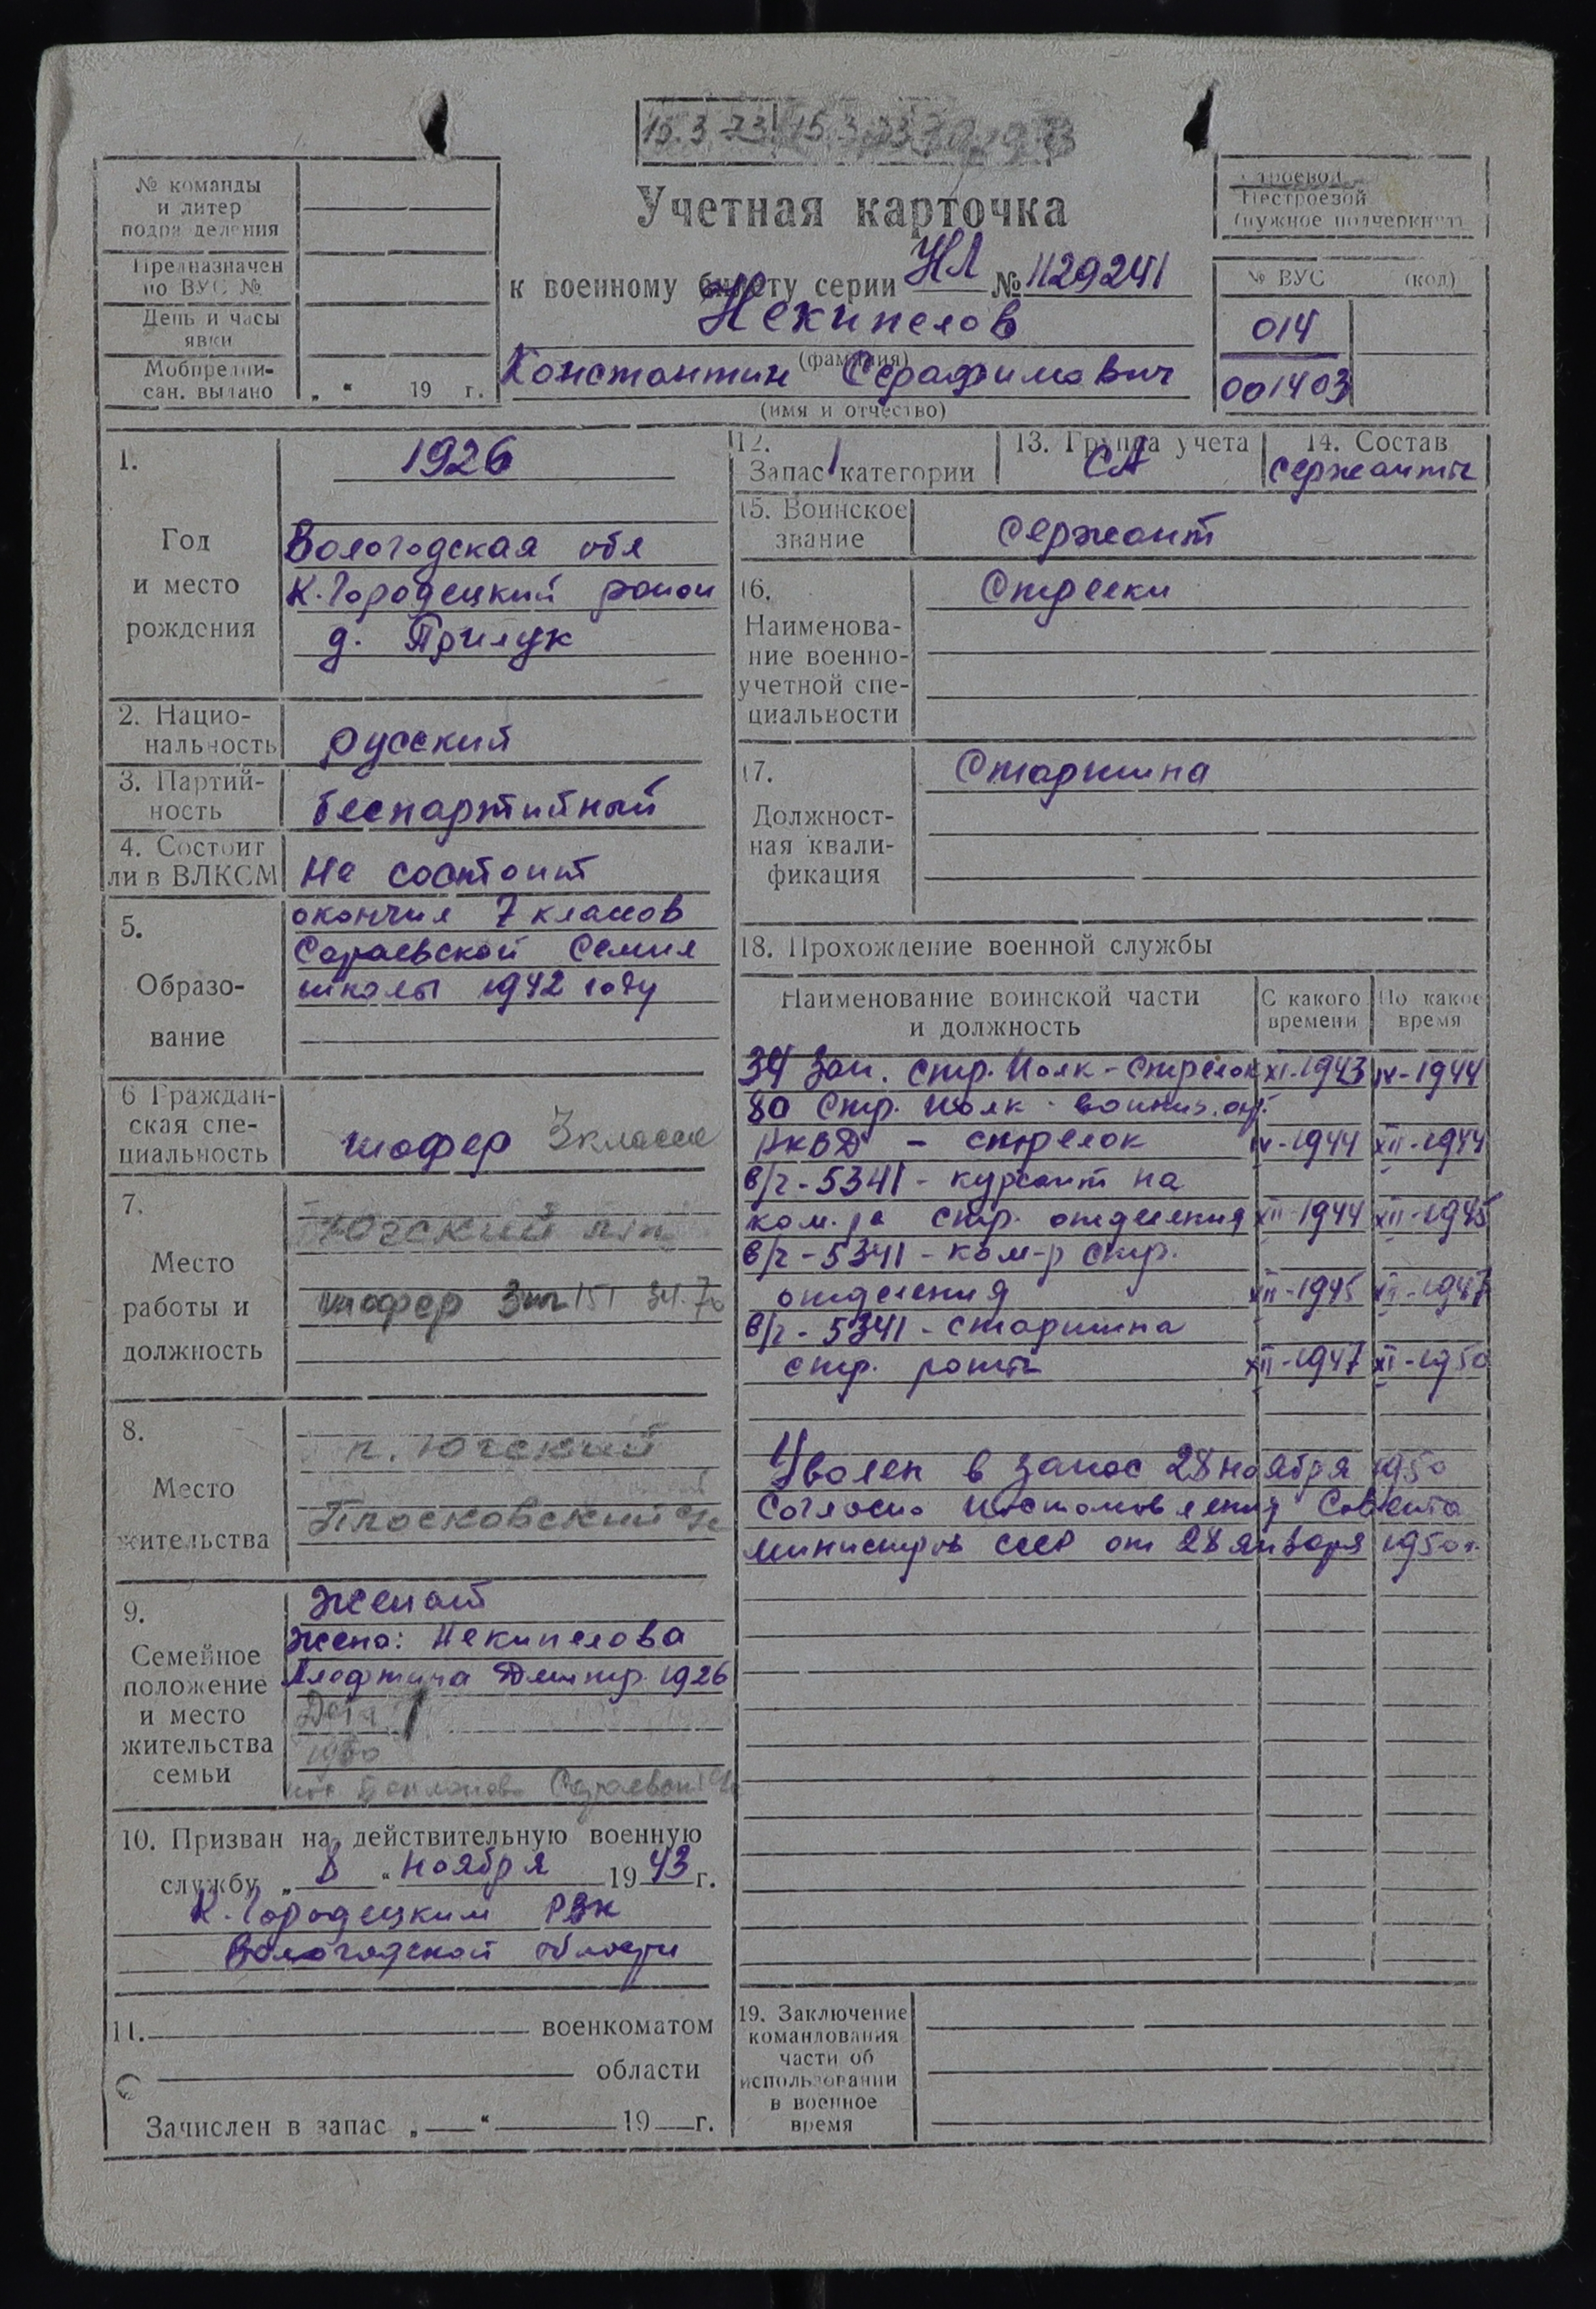 15.3.73 15.3.73
Учетная карточка
к военному билету серии НЛ № 1129241
Некипелов
(фамилия)
Константин Серафимович
(имя и отчество)
№ команды
и литер
подразделения
Предназначен
по ВУС №
День и часы
явки
Мобпредпи-
сан. выдано „ “ 19 г.
Строевой
Нестроевой
(нужное подчеркнуть)
№ ВУС (код)
014
001403
1. 1926
Год
и место
рождения
Вологодская обл
К.Городецкий район
д. Прилук
2. Нацио-
нальность
русский
3. Партий-
ность
беспартийный
4. Состоит
ли в ВЛКСМ
Не состоит
5.
Образо-
вание
окончил 7 классов
Сараевской Семил
школы 1942 году
6 Граждан-
ская спе-
циальность
шофер 3 класса
7.
Место
работы и
должность
Югский
шофер
8.
Место
жительства
п. Югский
Плосковский
9.
Семейное
положение
и место
жительства
семьи
Женат
жена: Некипелова
Алефтина Дмитр. 1926
1950
10. Призван на действительную военную
службу „8“ ноября 1943 г.
К.Городецким РВК
Вологодской области
11. военкоматом
области
Зачислен в запас „ “ 19 г.
12.
Запас 1 категории
13. Группа учета
СА
14. Состав
сержанты
15. Воинское
звание
сержант
16.
Наименова-
ние военно-
учетной спе-
циальности
Стрелки
17.
Должност-
ная квали-
фикация
Старшина
18. Прохождение военной службы
Наименование воинской части
и должность
С какого
времени
По какое
время
34 Зап. стр. Полк - стрелок XI-1943 IV-1944
80 Стр. полк
НКВД - стрелок IV-1944 XII-1944
в/ч - 5341 - курсант на
ком-ра стр. отделения XII-1944 XII-1945
в/ч - 5341 - ком-р стр.
отделения XII-1945 XII-1947
в/ч - 5341 - старшина
стр. роты XII-1947 XI-1950
Уволен в запас 28 ноября 1950
Согласно постановления Совета
министров СССР от 28 января 1950 г.
19. Заключение
командования
части об
использовании
в военное
время